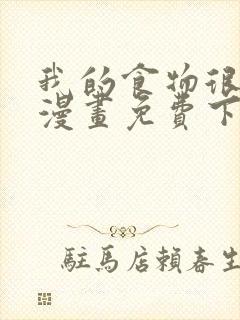 我的食物很
漫畫免費下
駐馬店賴春生